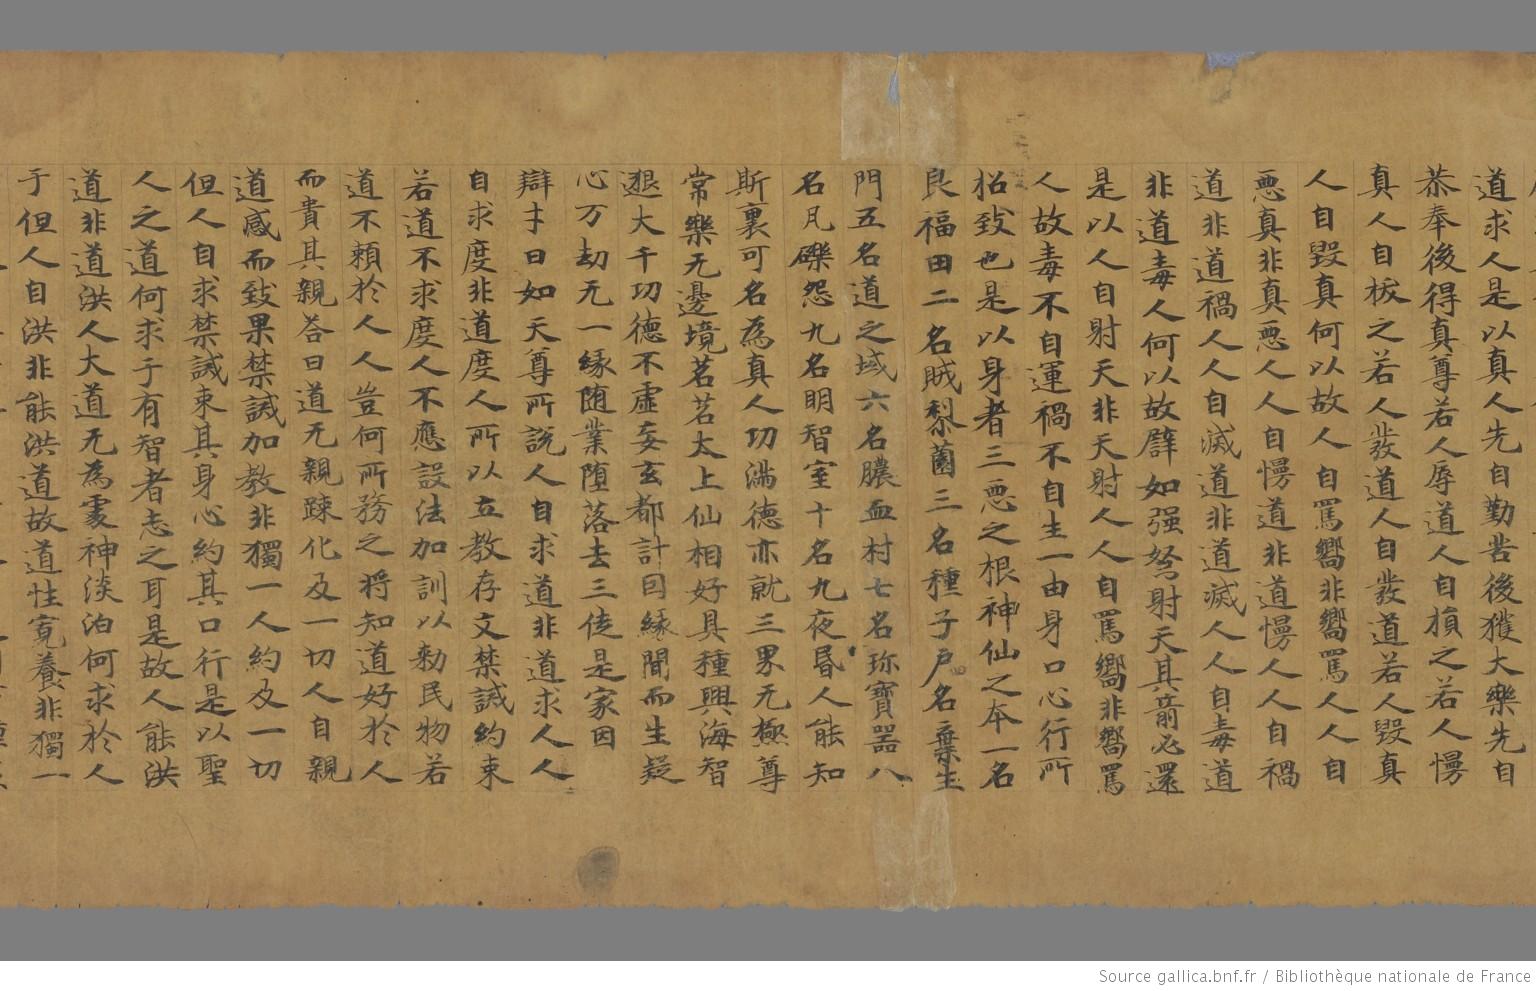 道求人是以真人先自勤苦後獲大樂先自
恭奉後得真尊若人辱道人自損之若人慢
真人自板之若人發道人自發道若人毀真
人自毀真何以故人自罵嚮非嚮罵人人自
惡真非真惡人人自慢道非道慢人人自禍
道非道禍人人自滅道非道滅人人自毒道
非道毒人何以故譬如强弩射天其箭必還
是以人自射天非天射人人自罵嚮非嚮罵
人故毒不自運禍不自生一由身口心行所
招致也是以身者三惡之根神仙之本一名
良福田二名賊梨園三名種子戶名棄生
門五名道之域六名膿血村七名珎寶器八
名凡礫怨九名明智室十名九夜昬人能知
斯裏可名為真人功滿德亦就三界无極尊
常樂无邊境茗茗太上仙相好具種興海智
退大千功德不虛妄玄都計因緣聞而生疑
心万劫无一緣随業堕落去三徒是家因
辯才曰如天尊所說人自求道非道求人人
自求度非道度人所以立教存文禁誡約束
若道不求度人不應設法加訓以勑民物若
道不頼於人人豈何所務之将知道好於人
而貴其親荅曰道无親踈化及一切人自親
道感而致果禁誡加教非獨一人約及一切
但人自求禁誡束其身心約其口行是以聖
人之道何求于有智者志之耳是故人能洪
道非道洪人大道无為虚神淡泊何求於人
于但人自洪非能洪道故道性寬養非獨一
Source gallica.bnf.fr / Bibliothèque nationale de France